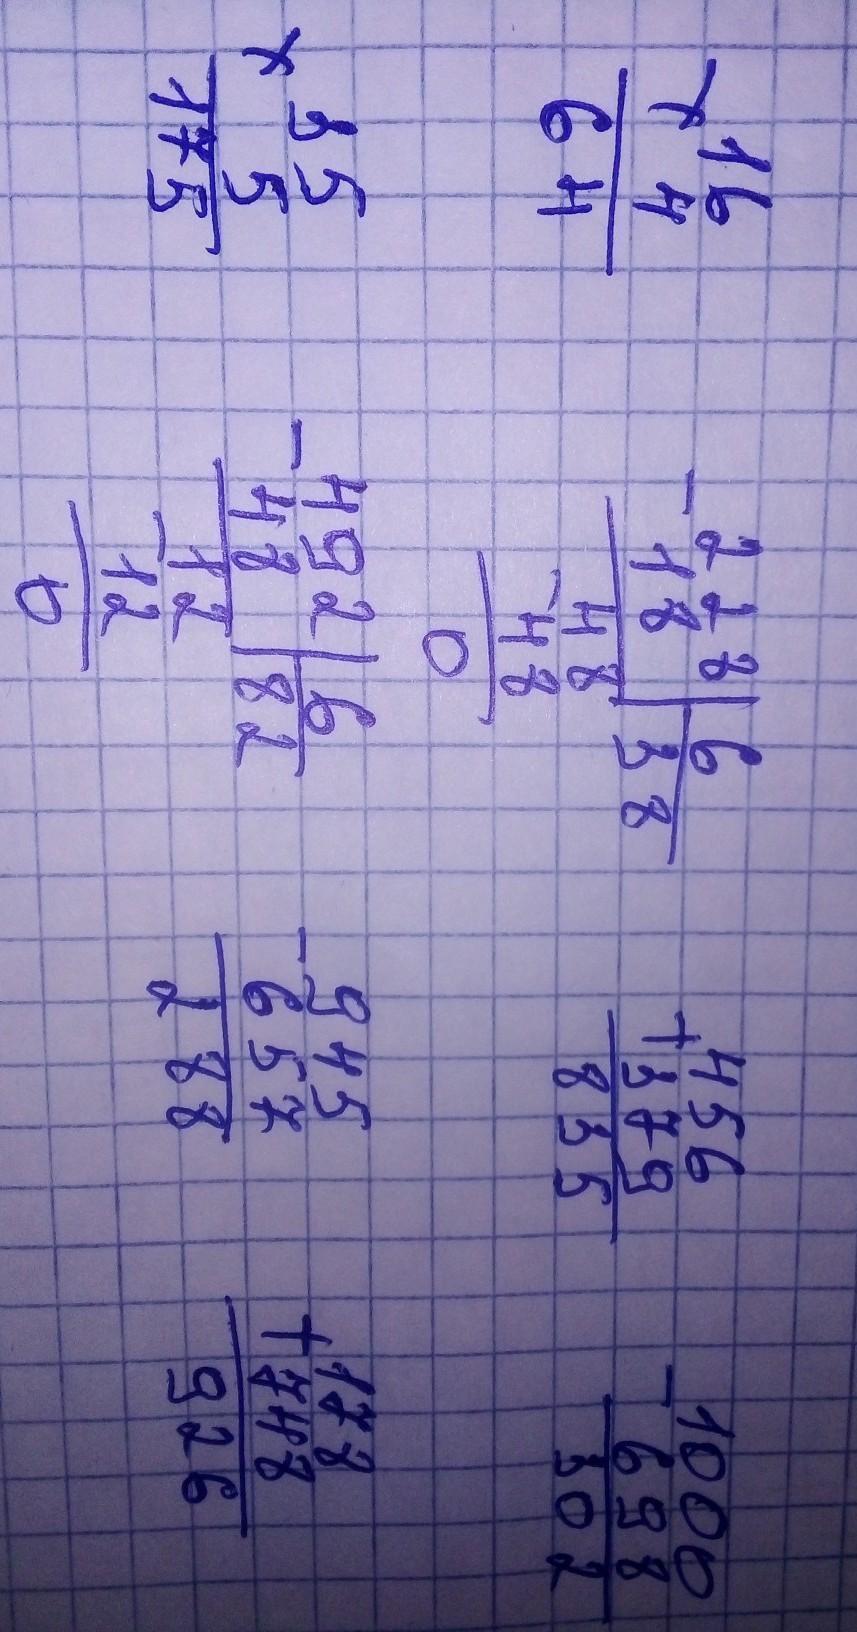 × 16
4
64
- 228 | 6
18 | 38
- 48
48
0
+ 456
379
835
- 1000
698
302
× 35
5
175
- 492 | 6
48 | 82
- 12
12
0
- 945
657
288
+ 178
748
926